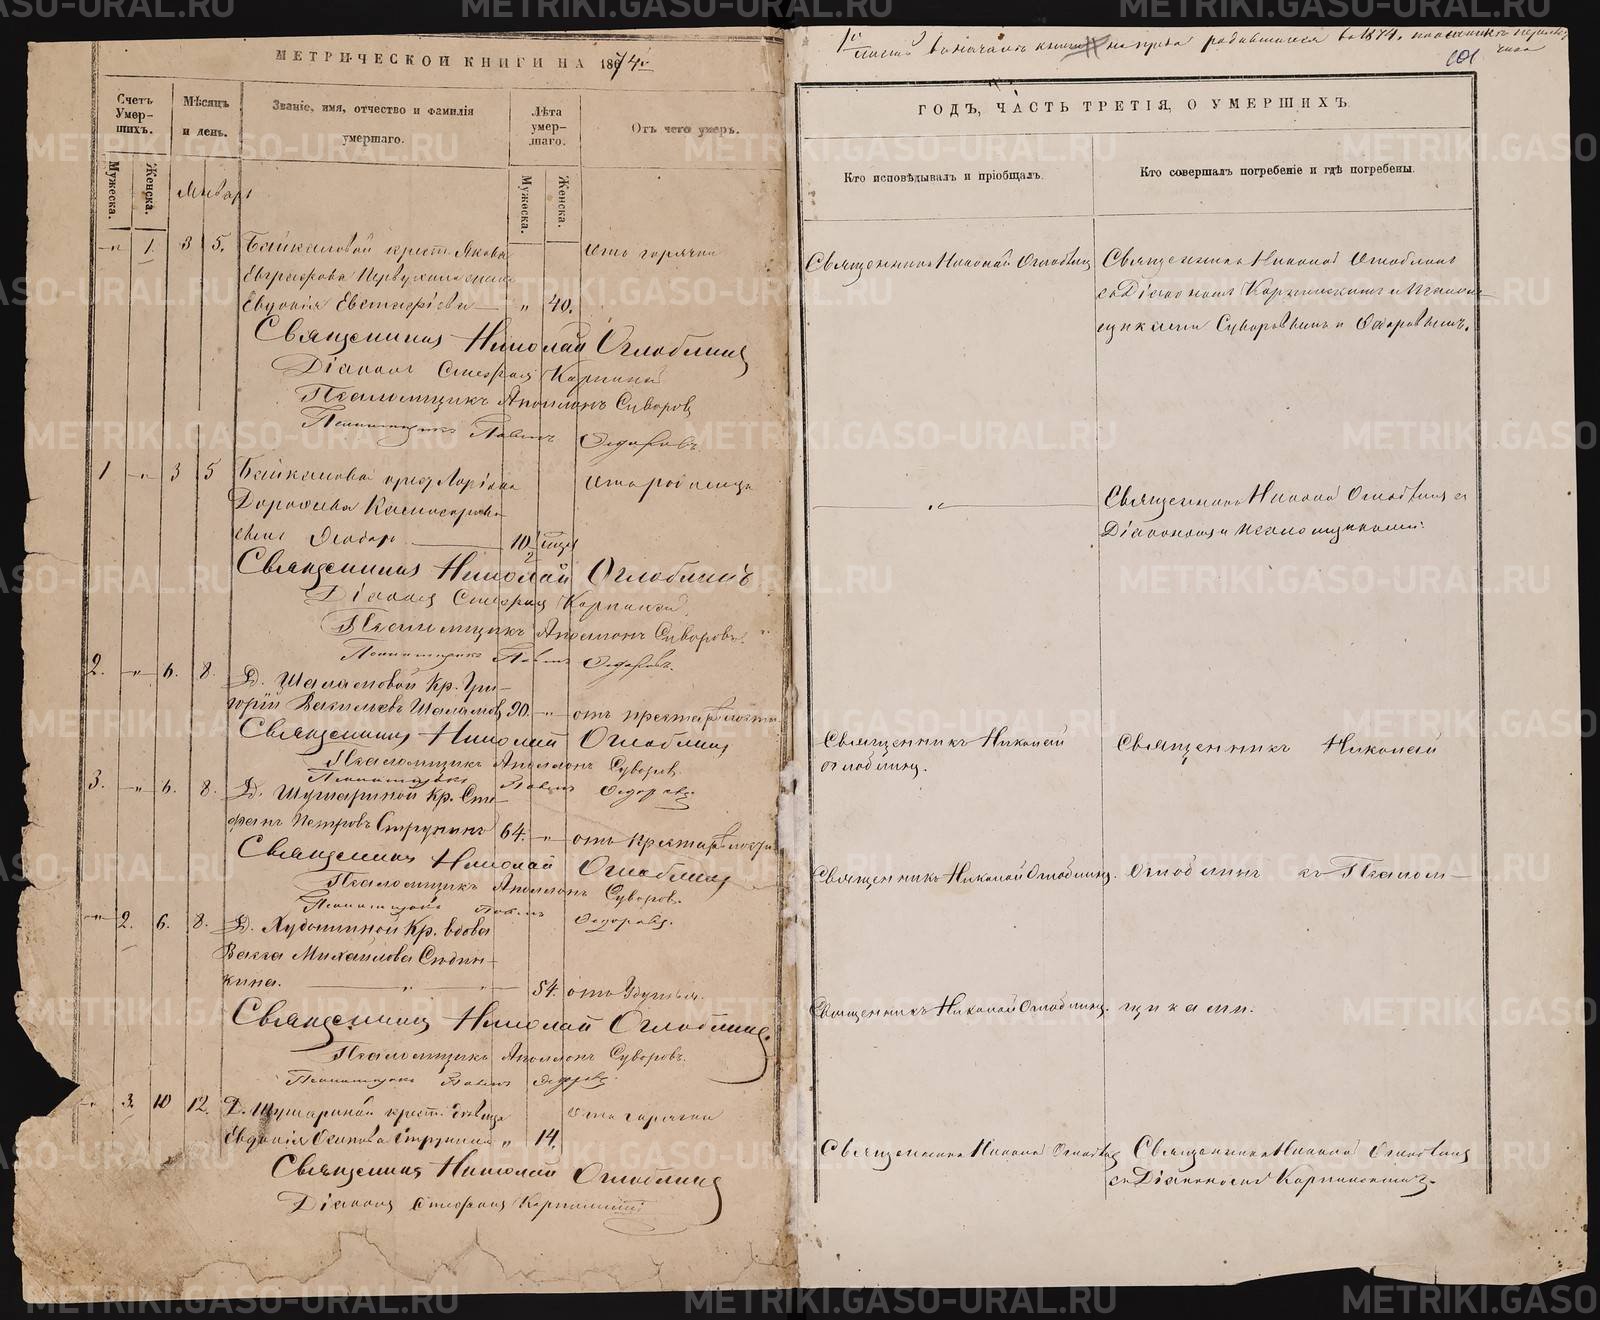 МЕТРИЧЕСКОЙ КНИГИ НА 1874й
Счетъ Умер-
шихъ.
Мѣсяцъ
и день.
Званіе, имя, отчество и фамилія
умершаго.
Лѣта
умер-
шаго.
Отъ чего умеръ.
Мужеска.
Женска.
Мужеска.
Женска.
Январь
-"- 1. 3 5. Байкаловой крест. Якова
Евграфова жена
Евдокія Евстафіева " 40.
отъ горячки
Священникъ Николай Оглоблинъ
Діаконъ Стефанъ Карпинскій
Псаломщикъ Аполлонъ Суворовъ
Псаломщикъ Павелъ Ѳедоровъ.
1 -"- 3 5 Байкалова крест.
Дороѳеева
сынъ Ѳедоръ 10 1/2
отъ родимца
Священникъ Николай Оглоблинъ
Діаконъ Стефанъ Карпинскій.
Псаломщикъ Аполлонъ Суворовъ.
Псаломщикъ Павелъ Ѳедоровъ.
2. -"- 6. 8. Д. Шаламовой Кр. Гри-
горій Васильевъ Шаламовъ 90. -"- отъ престарѣлости
Священникъ Николай Оглоблинъ
Псаломщикъ Аполлонъ Суворовъ.
Псаломщикъ Павелъ Ѳедоровъ.
3. -"- 6. 8. Д. Шушариной Кр. Сте-
фанъ Петровъ Струнинъ 64. -"- отъ престарѣлости
Священникъ Николай Оглоблинъ
Псаломщикъ Аполлонъ Суворовъ.
Псаломщикъ Павелъ Ѳедоровъ.
-"- 2. 6. 8. Д. Кр. вдова
Васса Михайлова
кина. " " 54. отъ удушья.
Священникъ Николай Оглоблинъ.
Псаломщикъ Аполлонъ Суворовъ.
Псаломщикъ Павелъ Ѳедоровъ.
-"- 3. 10 12. Д. Шушариной крест. дѣвица
Евдокія Осипова Струнина " 14.
отъ горячки
Священникъ Николай Оглоблинъ
Діаконъ Стефанъ Карпинскій
родившихся въ 1874.
101
ГОДЪ, ЧАСТЬ ТРЕТІЯ, О УМЕРШИХЪ.
Кто исповѣдывалъ и пріобщалъ.
Кто совершалъ погребеніе и гдѣ погребены.
Священникъ Николай Оглоблинъ
Священникъ Николай Оглоблинъ
съ Діакономъ Карпинскимъ и Псалом-
щиками Суворовымъ и Ѳедоровымъ.
"
Священникъ Николай Оглоблинъ съ
Діакономъ и псаломщиками.
Священникъ Николай
Оглоблинъ.
Священникъ Николай
Священникъ Николай Оглоблинъ.
Оглоблинъ съ Псалом-
Священникъ Николай Оглоблинъ.
щиками.
Священникъ Николай Оглоблинъ
Священникъ Николай Оглоблинъ
съ Діакономъ Карпинскимъ.
METRIKI.GASO-URAL.RU